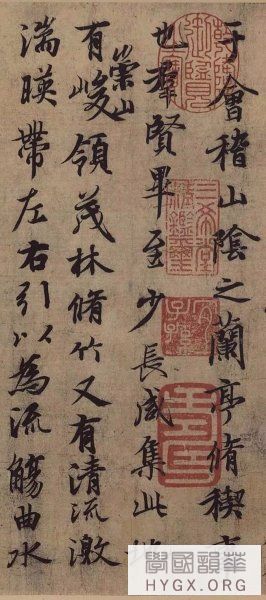 于會稽山陰之蘭亭脩稧事
也羣賢畢至少長咸集此地
有崇山峻領茂林脩竹又有清流激
湍暎帶左右引以為流觴曲水
三希堂精鑑璽
宜子孫
華韻國學
HYGX.ORG